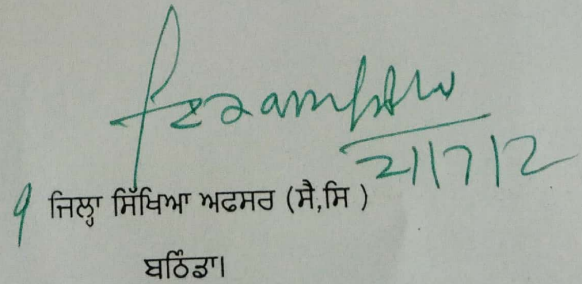 21/7/12
ਜਿਲ੍ਹਾ ਸਿੱਖਿਆ ਅਫਸਰ (ਸੈ,ਸਿ )
ਬਠਿੰਡਾ।